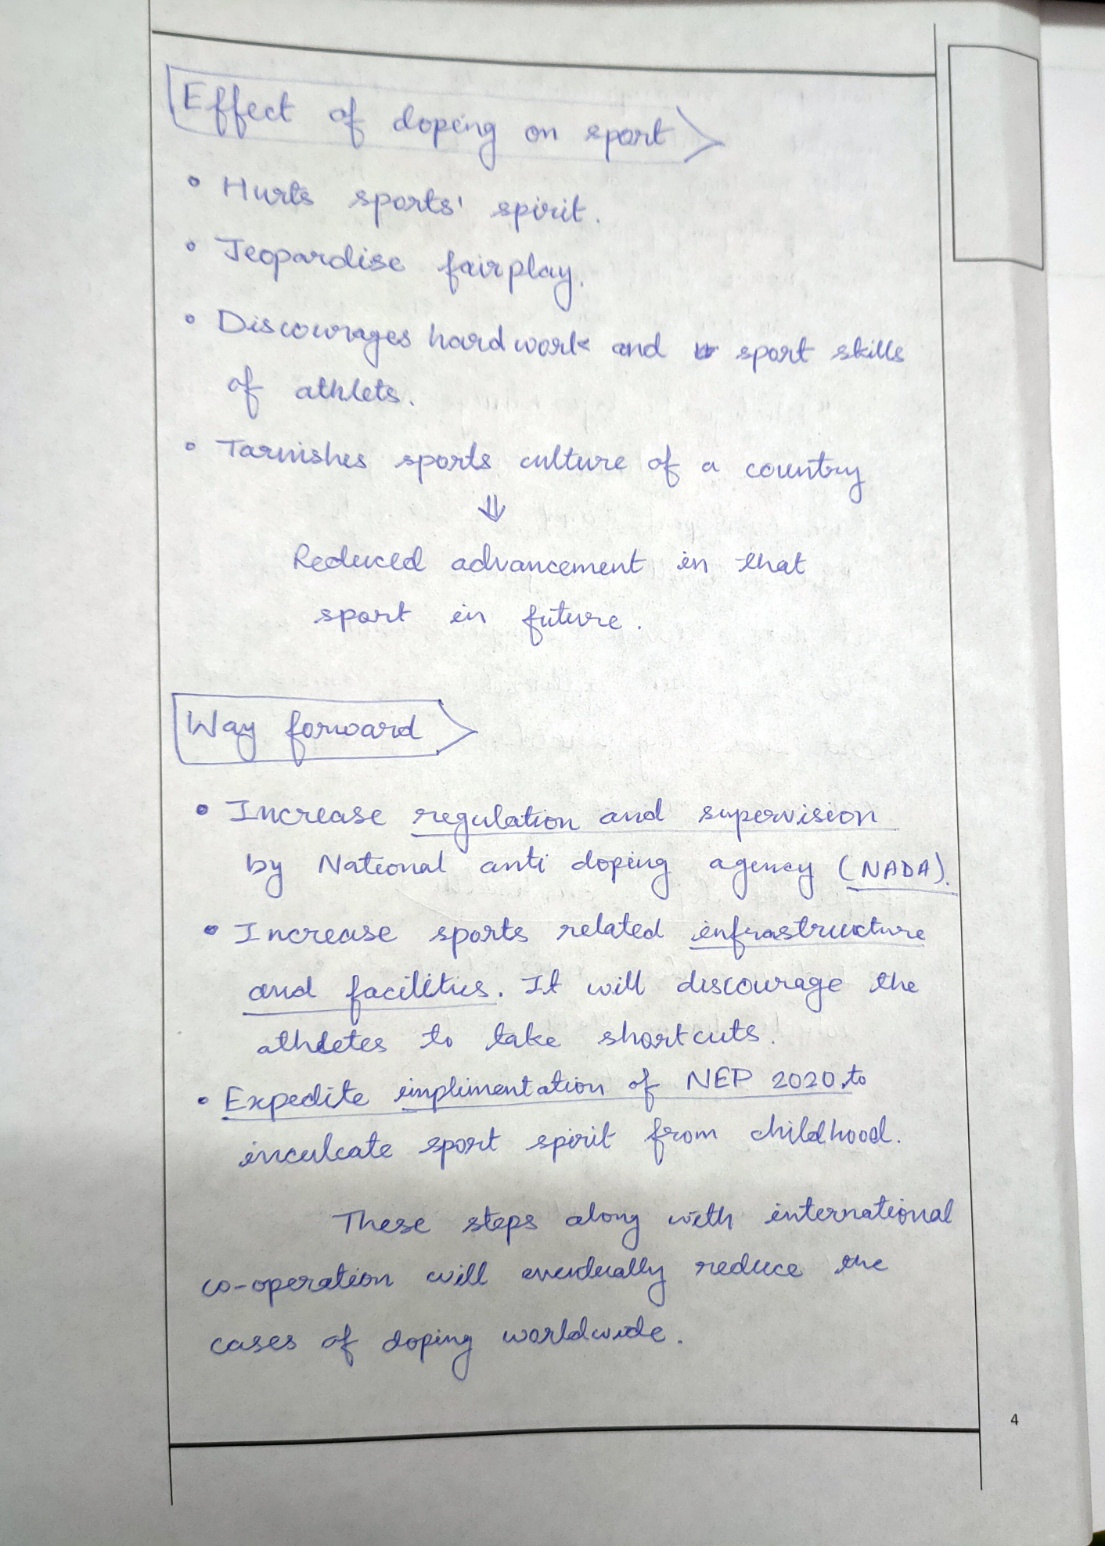 Effect of doping on sport
• Hurts sports' spirit.
• Jeopardise fairplay.
• Discourages hardwork and sport skills
of athlets.
• Tarnishes sports culture of a country
⇓
Reduced advancement in that
sport in future.
Way forward
• Increase regulation and supervision
by National anti doping agency (NADA).
• Increase sports related infrastructure
and facilities. It will discourage the
athletes to take shortcuts.
• Expedite implimentation of NEP 2020 to
inculcate sport spirit from childhood.
These steps along with international
co-operation will eventually reduce the
cases of doping worldwide.
4